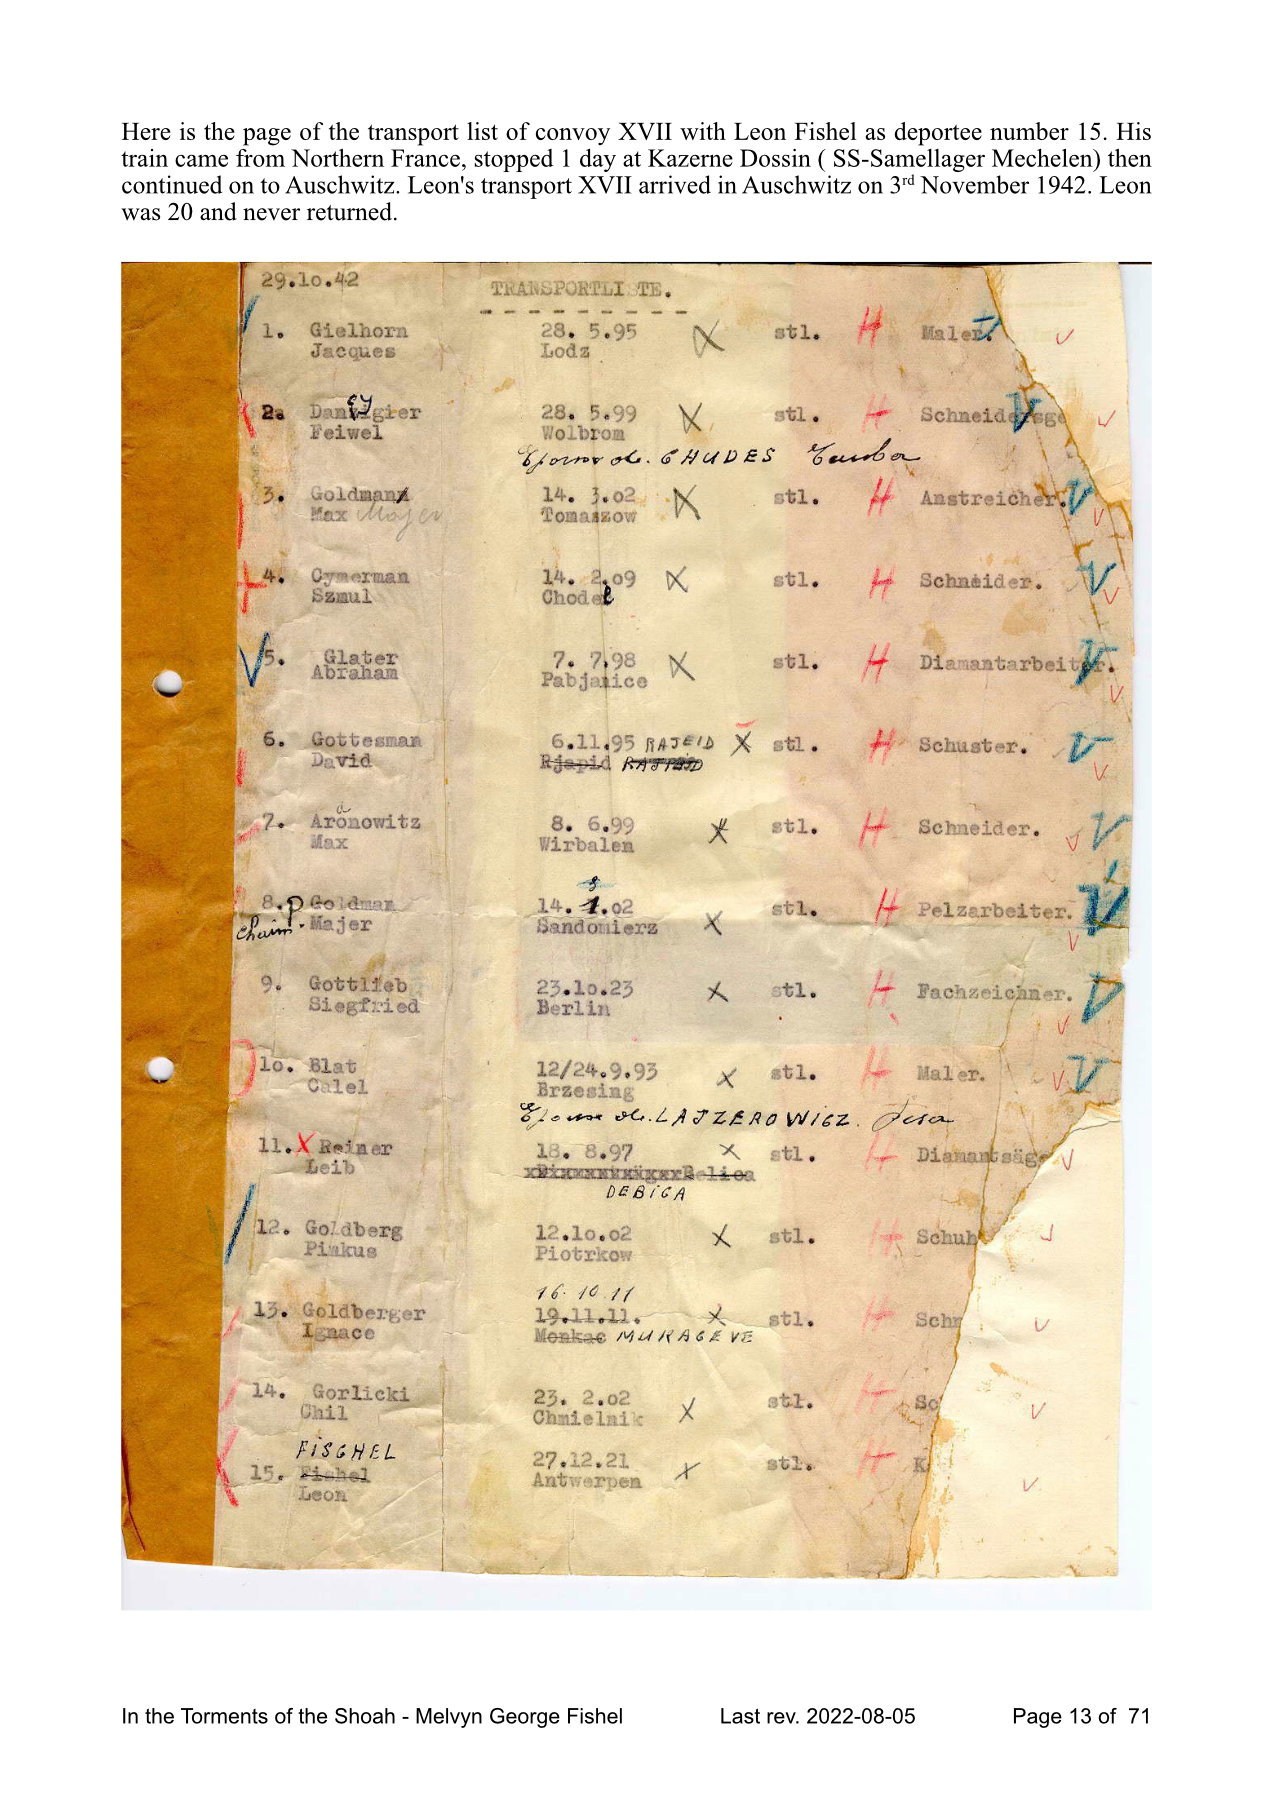 Here is the page of the transport list of convoy XVII with Leon Fishel as deportee number 15. His
train came from Northern France, stopped 1 day at Kazerne Dossin ( SS-Samellager Mechelen) then
continued on to Auschwitz. Leon's transport XVII arrived in Auschwitz on 3rd November 1942. Leon
was 20 and never returned.
29.10.42
TRANSPORTLISTE.
1. Gielhorn 28. 5.95 stl. H Maler.
Jacques Lodz
2. Danzygier 28. 5.99 stl. H Schneidersge
Feiwel Wolbrom
Epouse de. CHUDES
3. Goldman 14. 3.02 stl. H Anstreicher.
Max Majer Tomaszow
4. Cymerman 14. 2.09 stl. H Schneider.
Szmul Chodel
5. Glater 7. 7.98 stl. H Diamantarbeiter.
Abraham Pabjanice
6. Gottesman 6.11.95 RAJEID stl. H Schuster.
David Rjapid
7. Aronowitz 8. 6.99 stl. H Schneider.
Max Wirbalen
8. Goldman 14. .02 stl. H Pelzarbeiter.
Chaim. Majer Sandomierz
9. Gottlieb 23.10.23 stl. H Fachzeichner.
Siegfried Berlin
10. Blat 12/24.9.93 stl. H Maler.
Calel Brzesing
Epouse de. LAJZEROWICZ.
11. X Reiner 18. 8.97 stl. H Diamantsäge
Leib
DEBICA
12. Goldberg 12.10.02 stl. H Schuh
Pinkus Piotrkow
16.10.11
13. Goldberger 19.11.11. stl. H Schn
Ignace Monkac MUKACEVE
14. Gorlicki 23. 2.02 stl. H Sc
Chil Chmielnik
FISCHEL
15. Fishel 27.12.21 stl. H K
Leon Antwerpen
In the Torments of the Shoah - Melvyn George Fishel Last rev. 2022-08-05 Page 13 of 71